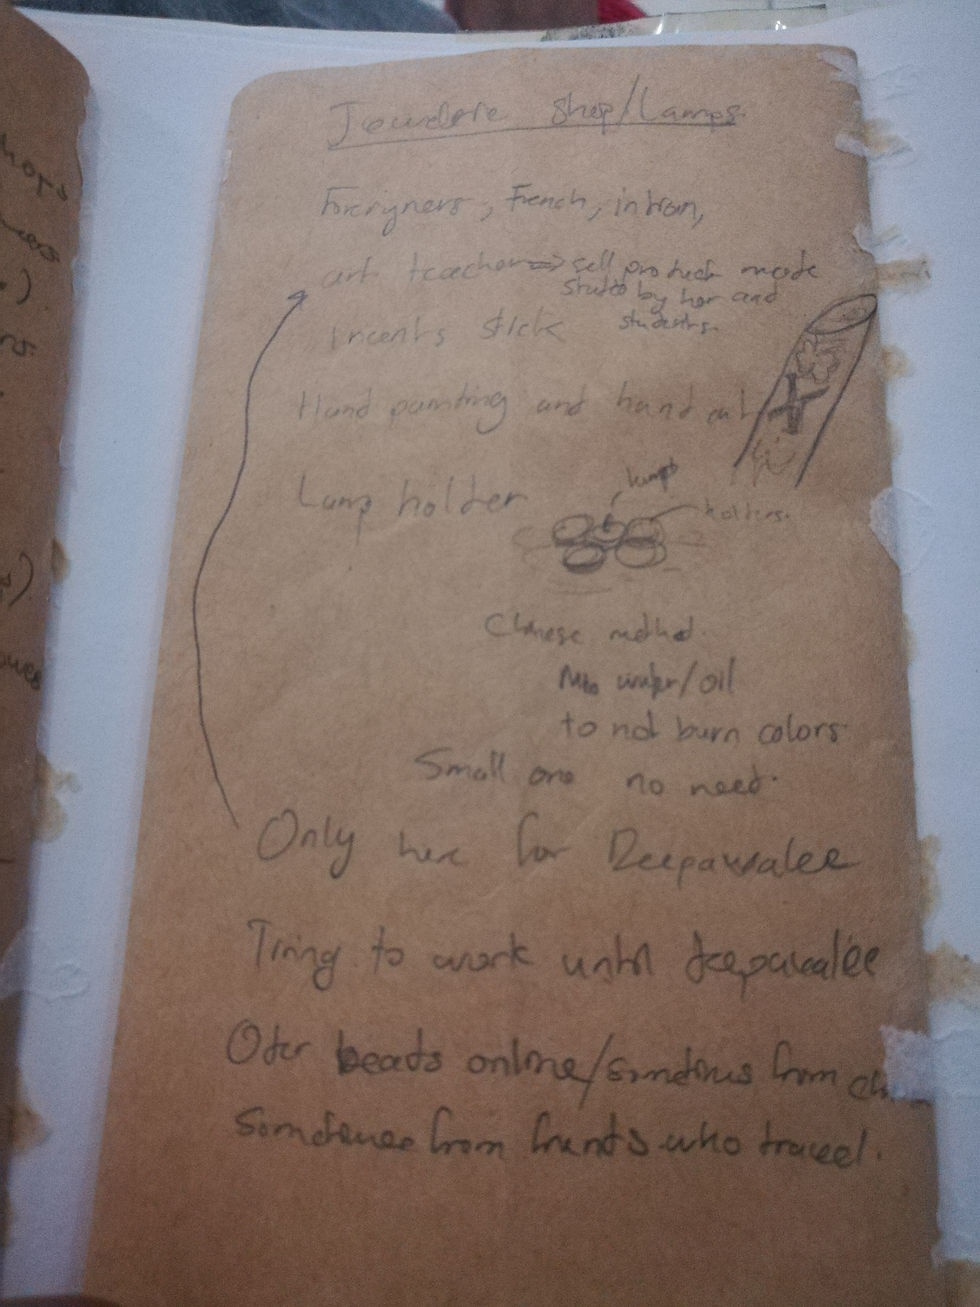 Jewelere Shop/Lamps
Foreigners, French,
art teacher => sell product made
by her and
students.
incents stick
Hand painting and hand
Lamp holder
lamp
holders.
Chinese method.
water/oil
to not burn colors
Small one no need.
Only here for Deepawalee
Tring to work until deepawalee
Oder beads online/somtimes from
Somtimes from friends who travel.